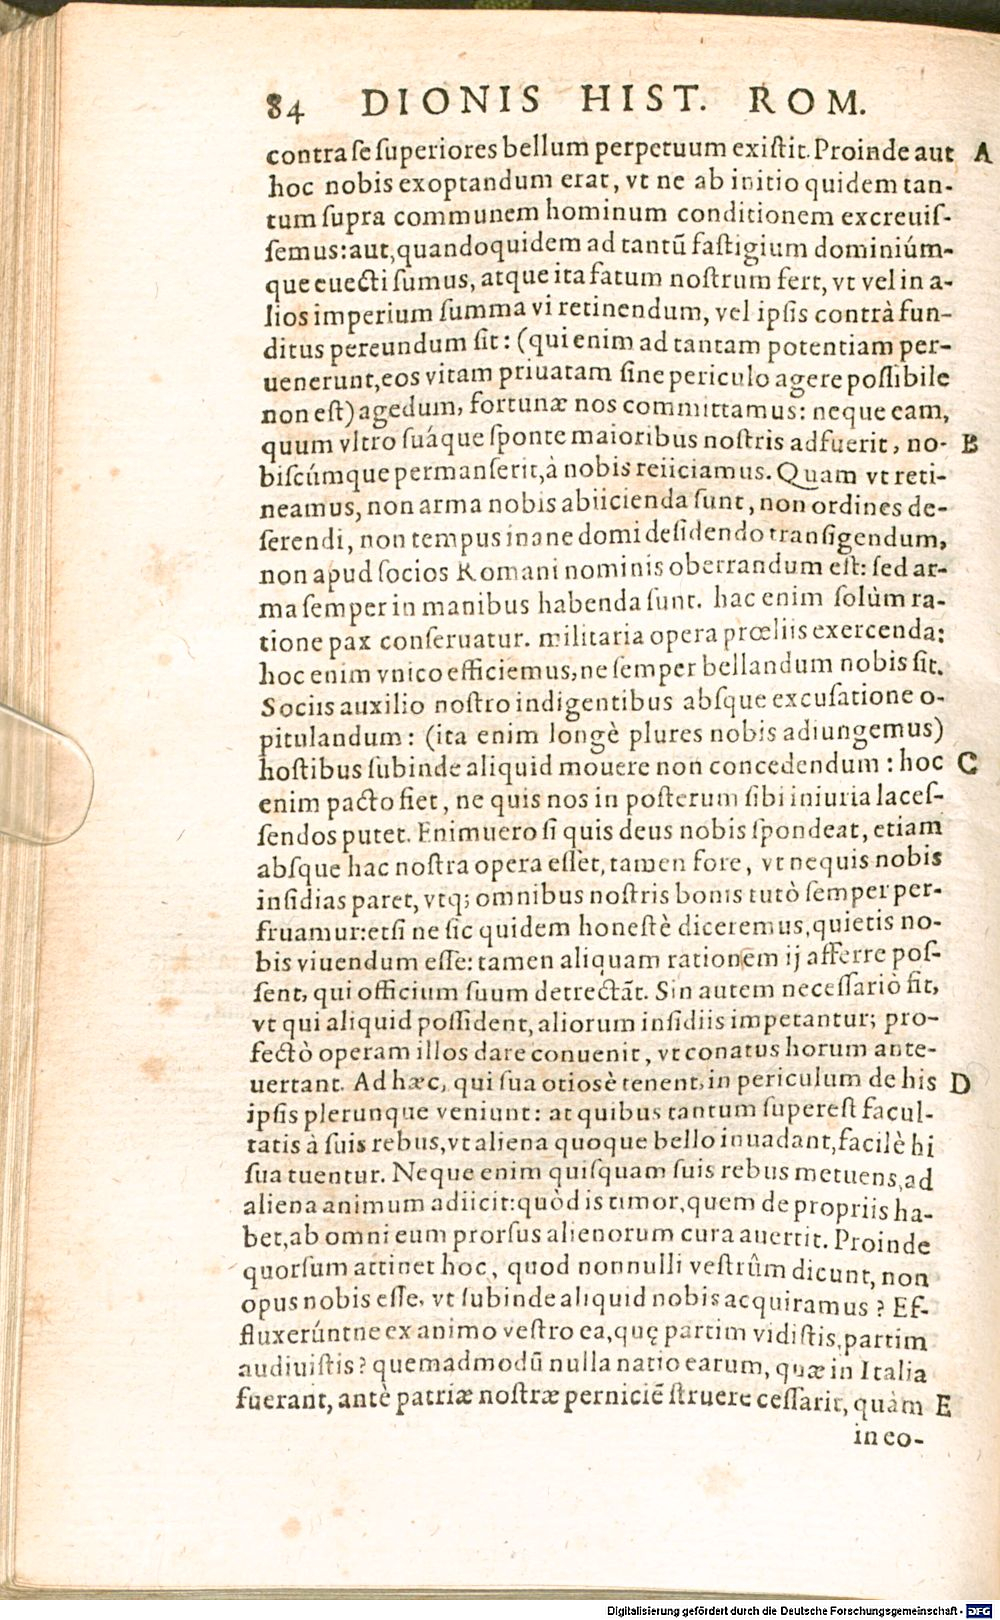 84 DIONIS HIST. ROM.
contra ſe ſuperiores bellum perpetuum exiſtit. Proinde aut A
hoc nobis exoptandum erat, vt ne ab initio quidem tan-
tum ſupra communem hominum conditionem excreuiſ-
ſemus: aut, quandoquidem ad tantū faſtigium dominiúm-
que euecti ſumus, atque ita fatum noſtrum fert, vt vel in a-
lios imperium ſumma vi retinendum, vel ipſis contrà fun-
ditus pereundum ſit: (qui enim ad tantam potentiam per-
uenerunt, eos vitam priuatam ſine periculo agere poſſibile
non eſt) agedum, fortunæ nos committamus: neque eam,
quum vltro ſuáque ſponte maioribus noſtris adfuerit, no- B
biſcúmque permanſerit, à nobis reiiciamus. Quam vt reti-
neamus, non arma nobis abiicienda ſunt, non ordines de-
ſerendi, non tempus inane domi deſidendo tranſigendum,
non apud ſocios Romani nominis oberrandum eſt: ſed ar-
ma ſemper in manibus habenda ſunt. hac enim ſolùm ra-
tione pax conſeruatur. militaria opera prœliis exercenda:
hoc enim vnico efficiemus, ne ſemper bellandum nobis ſit.
Sociis auxilio noſtro indigentibus abſque excuſatione o-
pitulandum: (ita enim longè plures nobis adiungemus)
hoſtibus ſubinde aliquid mouere non concedendum: hoc C
enim pacto fiet, ne quis nos in poſterum ſibi iniuria laceſ-
ſendos putet. Enimuero ſi quis deus nobis ſpondeat, etiam
abſque hac noſtra opera eſſèt, tamen fore, vt nequis nobis
inſidias paret, vtq; omnibus noſtris bonis tutò ſemper per-
fruamur: etſi ne ſic quidem honeſtè diceremus, quietis no-
bis viuendum eſſe: tamen aliquam rationem ij afferre poſ-
ſent, qui officium ſuum detrectāt. Sin autem neceſſariò fit,
vt qui aliquid poſſident, aliorum inſidiis impetantur; pro-
fectò operam illos dare conuenit, vt conatus horum ante-
uertant. Ad hæc, qui ſua otiosè tenent, in periculum de his D
ipſis plerunque veniunt: at quibus tantum ſupereſt facul-
tatis à ſuis rebus, vt aliena quoque bello inuadant, facilè hi
ſua tuentur. Neque enim quiſquam ſuis rebus metuens, ad
aliena animum adiicit: quòd is timor, quem de propriis ha-
bet, ab omni eum prorſus alienorum cura auertit. Proinde
quorſum attinet hoc, quod nonnulli veſtrûm dicunt, non
opus nobis eſſe, vt ſubinde aliquid nobis acquiramus? Ef-
fluxerúntne ex animo veſtro ea, quę partim vidiſtis, partim
audiuiſtis? quemadmodū nulla natio earum, quæ in Italia
fuerant, antè patriæ noſtræ perniciē ſtruere ceſſarit, quàm E
in eo-
Digitalisierung gefördert durch die Deutsche Forschungsgemeinschaft - DFG